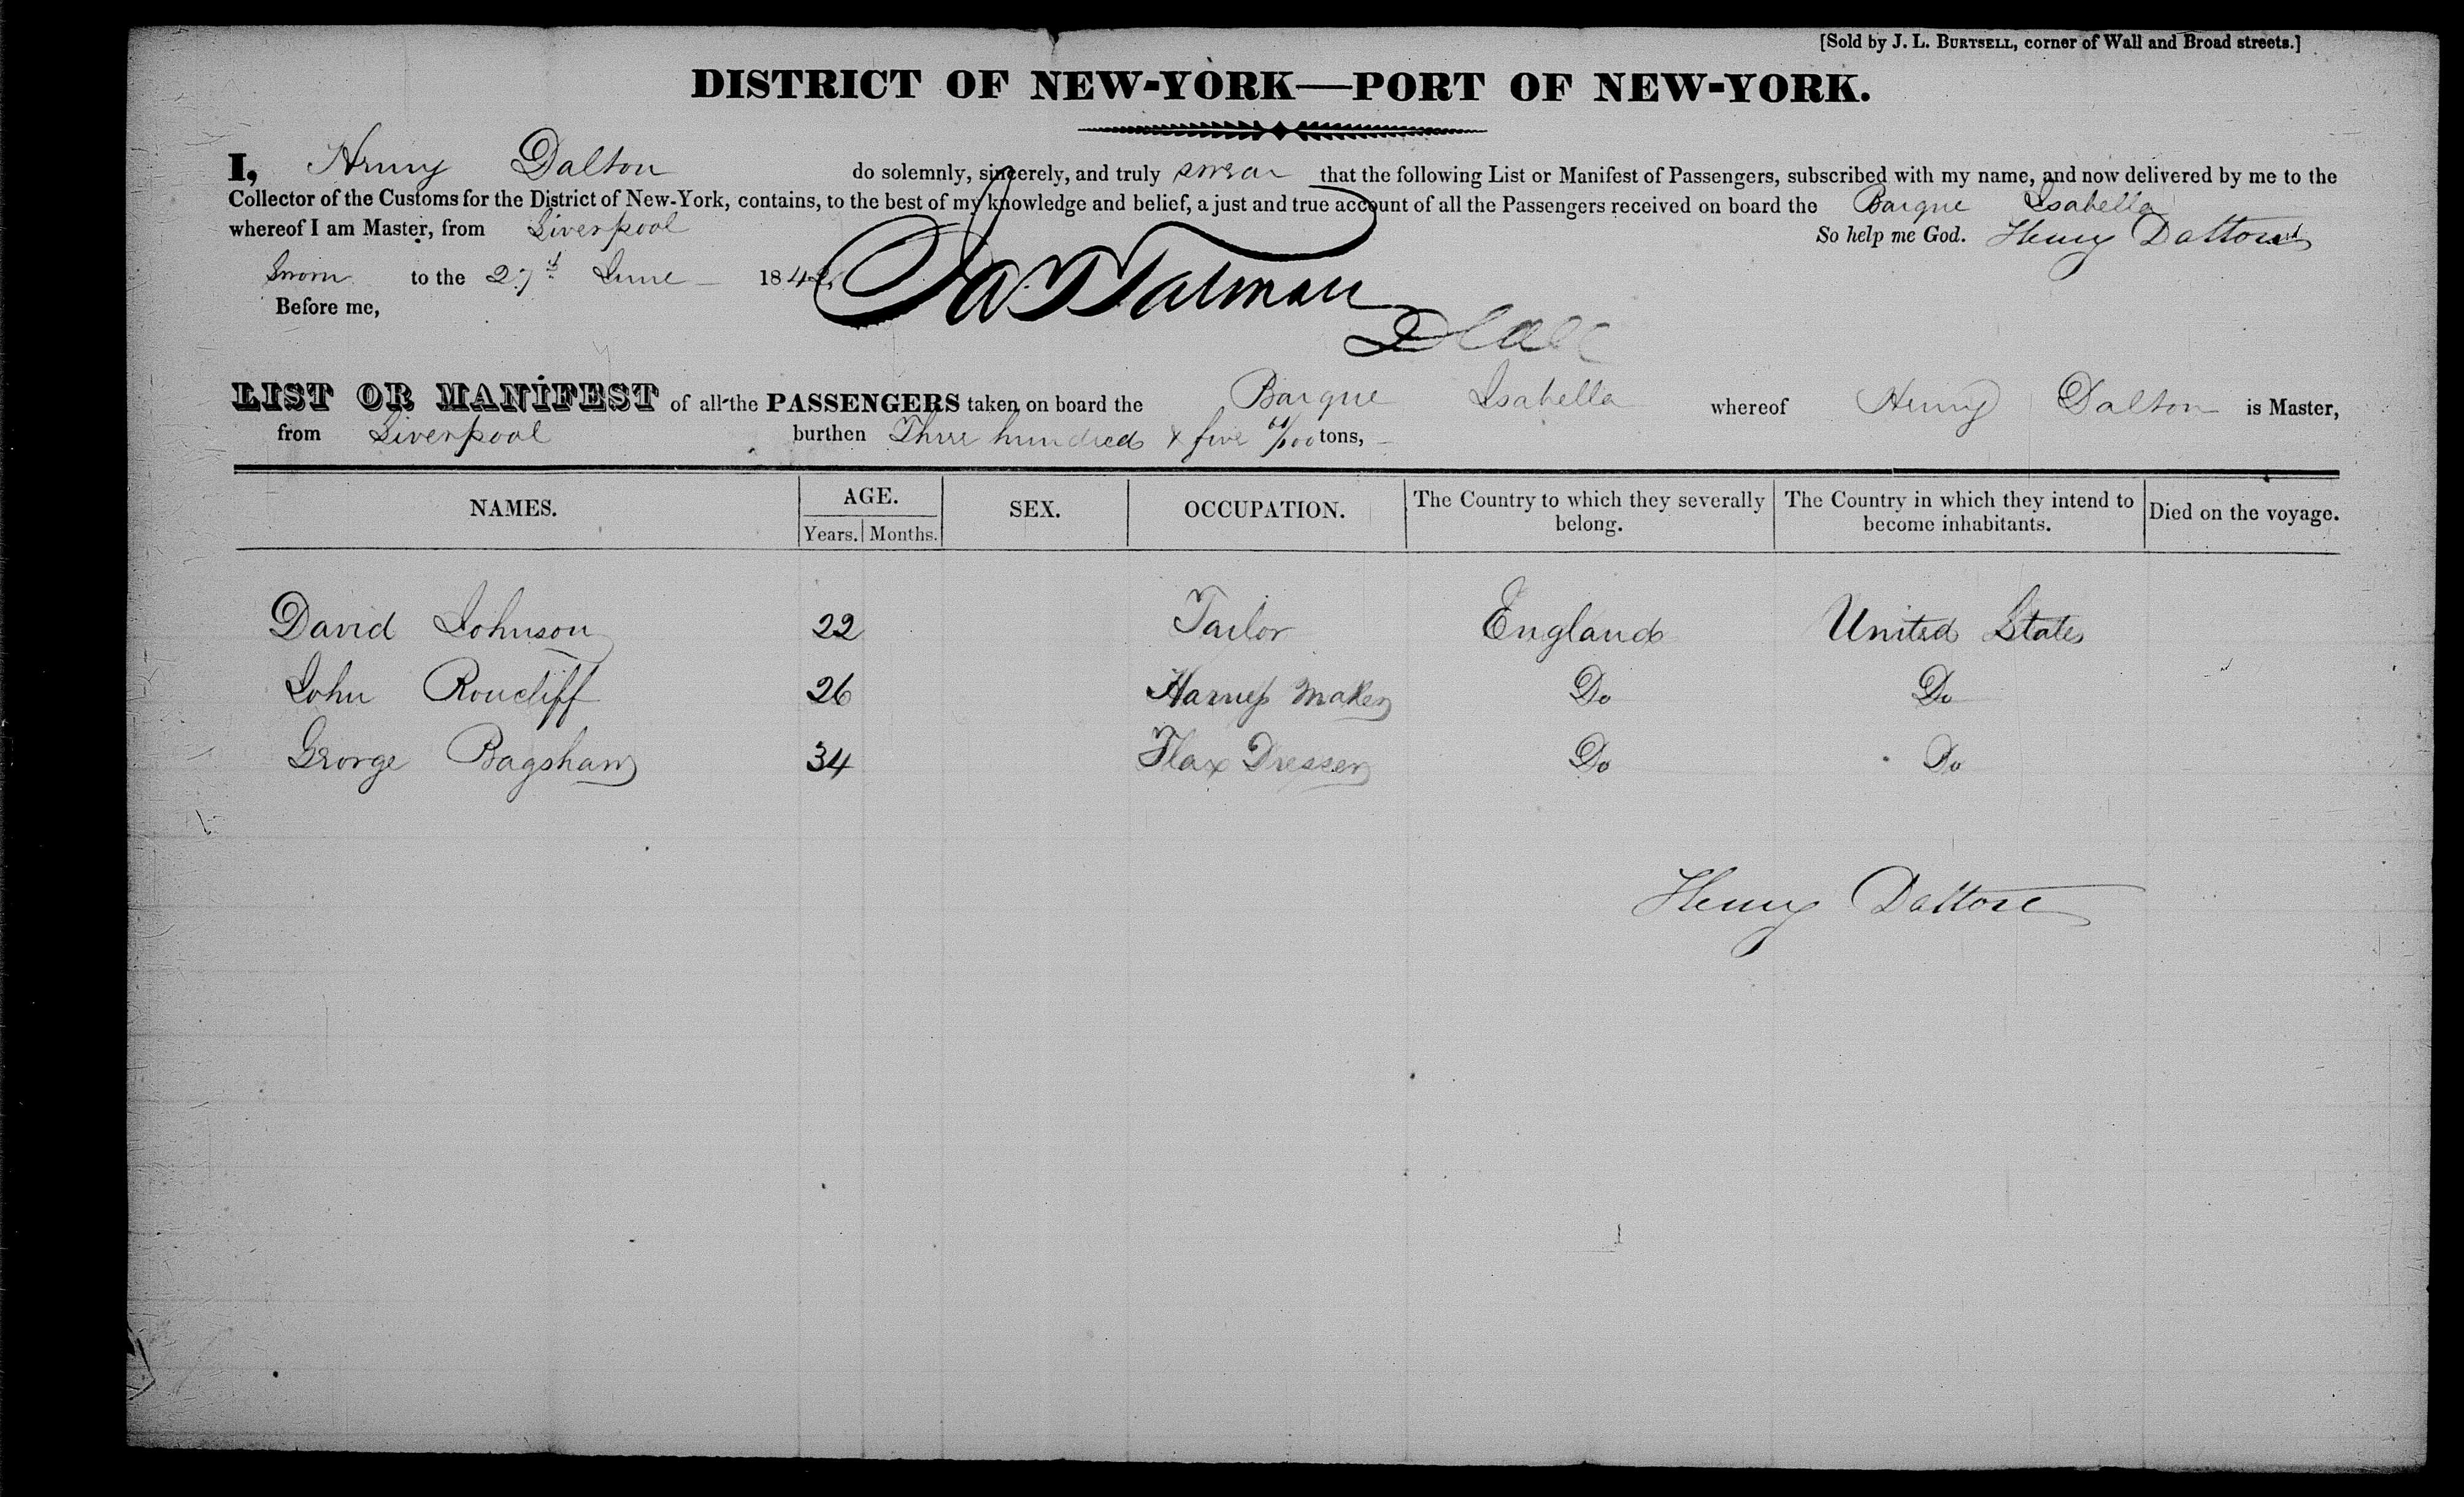 [Sold by J. L. BURTSELL, corner of Wall and Broad streets.]
DISTRICT OF NEW-YORK—PORT OF NEW-YORK.
I, Henry Dalton do solemnly, sincerely, and truly swear that the following List or Manifest of Passengers, subscribed with my name, and now delivered by me to the
Collector of the Customs for the District of New-York, contains, to the best of my knowledge and belief, a just and true account of all the Passengers received on board the Barque Isabella
whereof I am Master, from Liverpool So help me God. Henry Dalton
Sworn to the 27th June 1842
Before me,
LIST OR MANIFEST of all the PASSENGERS taken on board the Barque Isabella whereof Henry Dalton is Master,
from Liverpool burthen Three hundred & five /100 tons,
NAMES. AGE. SEX. OCCUPATION. The Country to which they severally belong. The Country in which they intend to become inhabitants. Died on the voyage.
Years. Months.
David Johnson 22 Tailor England United States
John Roucliff 26 Harness Maker Do Do
George Bagshaw 34 Flax Dresser Do Do
Henry Dalton